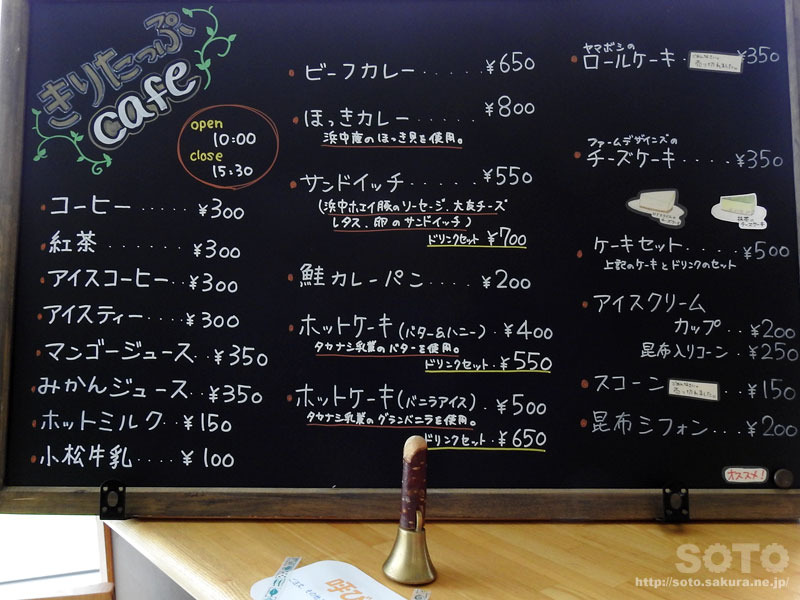 きりたっぷ
cafe
open
10:00
close
15:30
コーヒー‥‥ ¥300
紅茶 ‥‥‥‥ ¥300
アイスコーヒー‥ ¥300
アイスティー‥‥ ¥300
マンゴージュース‥ ¥350
みかんジュース‥ ¥350
ホットミルク‥ ¥150
小松牛乳‥‥ ¥100
ビーフカレー‥‥‥ ¥650
ほっきカレー‥‥‥ ¥800
浜中産のほっき貝を使用。
サンドイッチ‥‥‥ ¥550
(浜中ホエイ豚のソーセージ、大友チーズ
レタス、卵のサンドイッチ)
ドリンクセット ¥700
鮭カレーパン‥‥ ¥200
ホットケーキ(バター&ハニー)・¥400
タカナシ乳業のバターを使用。
ドリンクセット‥ ¥550
ホットケーキ(バニラアイス)・¥500
タカナシ乳業のグランバニラを使用。
ドリンクセット‥ ¥650
ヤマボシの
ロールケーキ ¥350
売り切れました。
ファームデザインズの
チーズケーキ‥‥ ¥350
ケーキセット‥‥‥ ¥500
上記のケーキとドリンクのセット
アイスクリーム
カップ‥ ¥200
昆布入りコーン・¥250
スコーン ¥150
売り切れました。
昆布シフォン‥‥ ¥200
オススメ!
呼び
SOTO
http://soto.sakura.ne.jp/